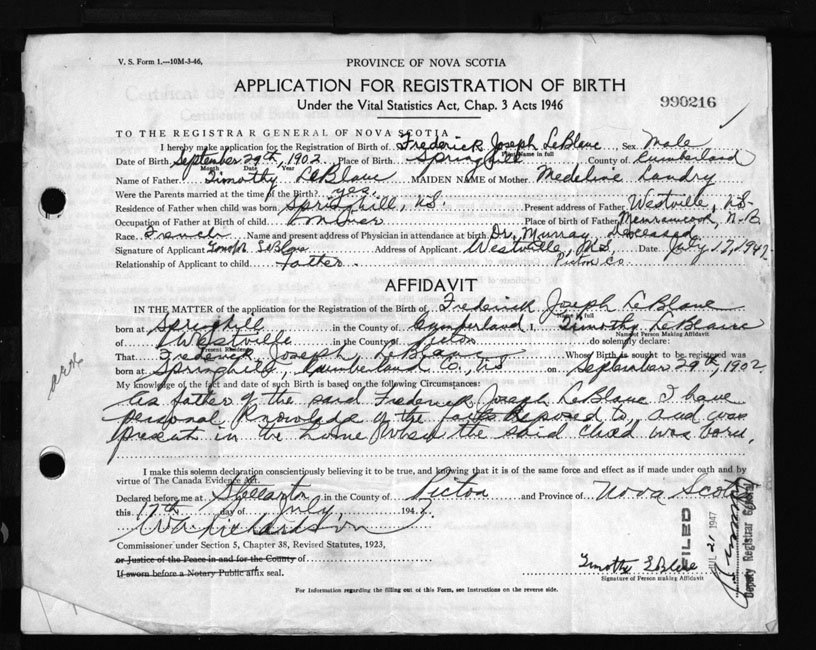 V. S. Form 1.—10M-3-46,
PROVINCE OF NOVA SCOTIA
APPLICATION FOR REGISTRATION OF BIRTH
Under the Vital Statistics Act, Chap. 3 Acts 1946
990216
TO THE REGISTRAR GENERAL OF NOVA SCOTIA
I hereby make application for the Registration of Birth of Frederick Joseph LeBlanc Sex Male
Print Name in full
Date of Birth September 29th, 1902 Place of Birth Springhill County of Cumberland
Month Day Year
Name of Father Timothy LeBlanc MAIDEN NAME of Mother Medeline Landry
Were the Parents married at the time of the Birth? yes.
Residence of Father when child was born Springhill, N.S. Present address of Father Westville, N.S.
Occupation of Father at Birth of child Miner Place of birth of Father Memramcook, N.B
Race French Name and present address of Physician in attendance at birth Dr. Murray, Deceased
Signature of Applicant Timothy LeBlanc Address of Applicant Westville, N.S. Date July 17, 1947
Relationship of Applicant to child Father Pictou Co
AFFIDAVIT
IN THE MATTER of the application for the Registration of the Birth of Frederick Joseph LeBlanc
Name in full
born at Springhill in the County of Cumberland, Timothy LeBlanc
Name of Person Making Affidavit
of Westville in the County of Pictou do solemnly declare:
Present Residence
That Frederick Joseph LeBlanc Whose Birth is sought to be registered was
born at Springhill, Cumberland Co., NS on September 29th, 1902.
My knowledge of the fact and date of such Birth is based on the following Circumstances:
As father of the said Frederick Joseph LeBlanc I have
personal knowledge of the facts deposed to, and was
present in the home when the said child was born.
I make this solemn declaration conscientiously believing it to be true, and knowing that it is of the same force and effect as if made under oath and by
virtue of The Canada Evidence Act.
Declared before me at Stellarton in the County of Pictou and Province of Nova Scotia
this 17th day of July, 1947.
Richardson
Commissioner under Section 5, Chapter 38, Revised Statutes, 1923,
or Justice of the Peace in and for the County of
If sworn before a Notary Public affix seal.
Signature of Person making Affidavit
For Information regarding the filling out of this Form, see Instructions on the reverse side.
FILED
JUL 21 1947
Deputy Registrar General